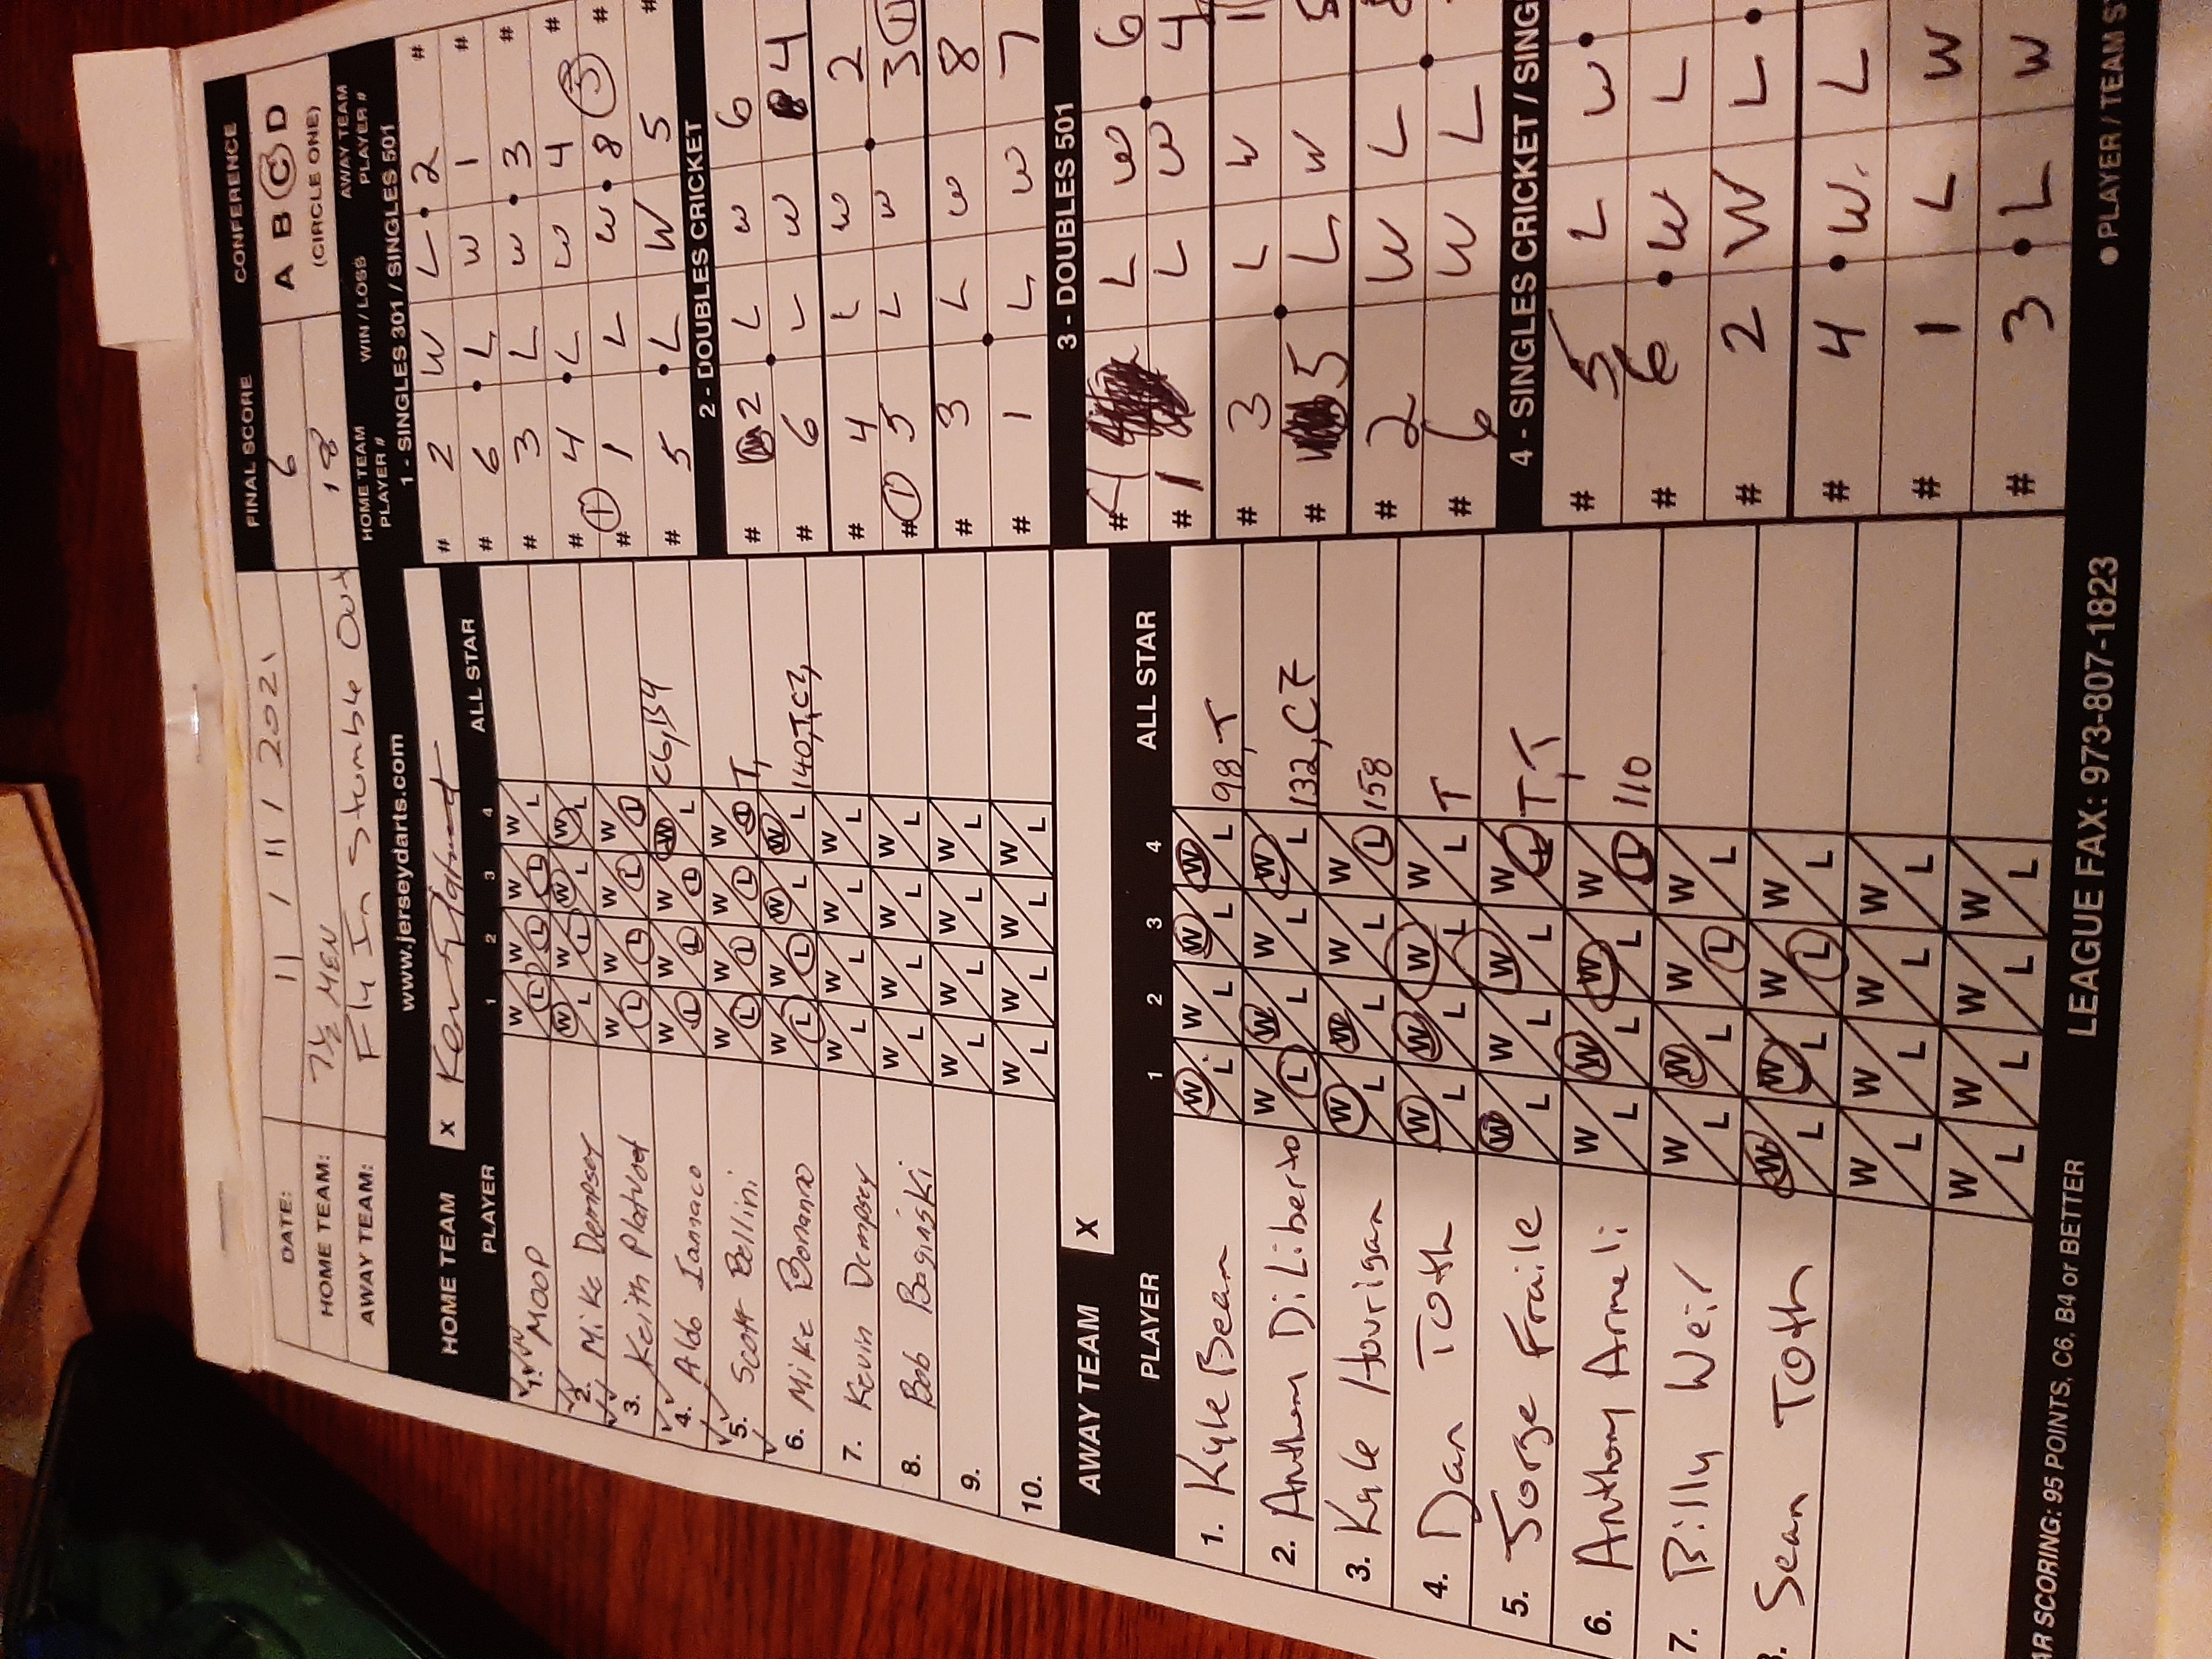 DATE: 11 / 11 / 2021
FINAL SCORE
CONFERENCE
HOME TEAM: 7½ MEN 6
A B C D
AWAY TEAM: Fly In Stumble Out 18
(CIRCLE ONE)
www.jerseydarts.com
HOME TEAM X
PLAYER 1 2 3 4 ALL STAR
1. MOOP W L W L W L W L
2. Mike Dempsey W L W L W L W L
3. Keith Platvoet W L W L W L W L
4. Aldo Iannaco W L W L W L W L C6, B4
5. Scott Bellini W L W L W L W L T,
6. Mike Bonanno W L W L W L W L 140, T,
7. Kevin Dempsey W L W L W L W L
8. Bob Baginski W L W L W L W L
9. W L W L W L W L
10. W L W L W L W L
AWAY TEAM X
PLAYER 1 2 3 4 ALL STAR
1. Kyle Bean W L W L W L W L 98, T
2. Anthony DiLiberto W L W L W L W L 132, C7
3. Kyle Hourigan W L W L W L W L 158
4. Dan Toth W L W L W L W L T
5. Jorge Fraile W L W L W L W L T, T
6. Anthony Armeli W L W L W L W L 110
7. Billy Weir W L W L W L W L
Sean Toth W L W L W L W L
W L W L W L W L
W L W L W L W L
AR SCORING: 95 POINTS, C6, B4 or BETTER
LEAGUE FAX: 973-807-1823
● PLAYER / TEAM S
HOME TEAM PLAYER # WIN / LOSS AWAY TEAM PLAYER #
1 - SINGLES 301 / SINGLES 501
# 2 W L 2 #
# 6 L W 1 #
# 3 L W 3 #
# 4 L W 4 #
# 1 1 L W 8 5 #
# 5 L W 5 #
2 - DOUBLES CRICKET
# 2 L W 6
# 6 L W 4
# 4 L W 2
# 1 5 L W 3 1
# 3 L W 8
# 1 L W 7
3 - DOUBLES 501
# 4 L W 6
# 1 L W 4
# 3 L W 1
# 5 L W
# 2 W L
# 6 W L
4 - SINGLES CRICKET / SING
# 5 L W
# 6 W L
# 2 W L
# 4 W L
# 1 L W
# 3 L W